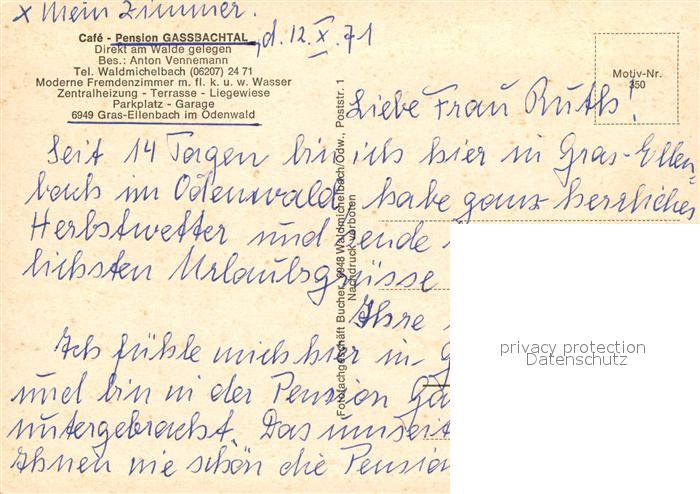 x Mein Zimmer.
Café - Pension GASSBACHTAL
, d. 12. X. 71
Direkt am Walde gelegen
Bes.: Anton Vennemann
Tel. Waldmichelbach (06207) 24 71
Moderne Fremdenzimmer m. fl. k. u. w. Wasser
Zentralheizung - Terrasse - Liegewiese
Parkplatz - Garage
6949 Gras-Ellenbach im Odenwald
Motiv-Nr.
350
Liebe Frau Ruth!
Seit 14 Tagen bin ich hier in Gras-Ellen-
bach im Odenwald habe ganz herrliches
Herbstwetter und sende
lichsten Urlaubsgrüsse
Ihre
Ich fühle mich hier in G
und bin in der Pension Ga
untergebracht. Das umseit
Ihnen wie schön die Pension
Fotofachgeschäft Bucher, 6948 Waldmichelbach/Odw., Poststr. 1
Nachdruck verboten
privacy protection
Datenschutz